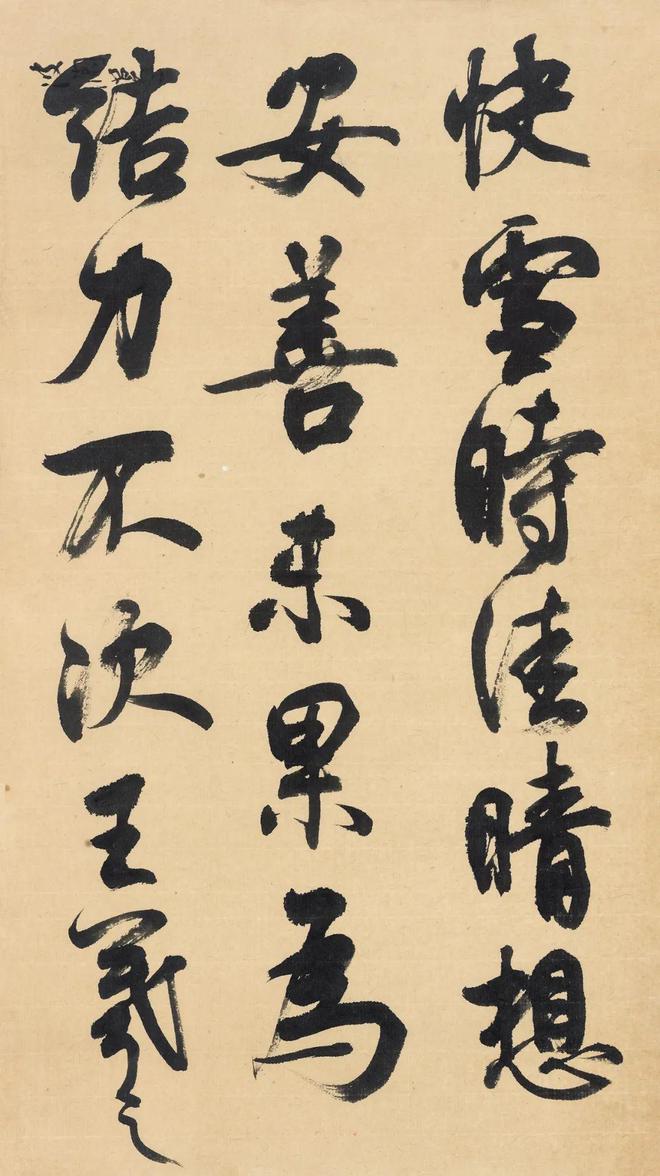 快雪時佳晴想
安善未果為
結力不次王羲之